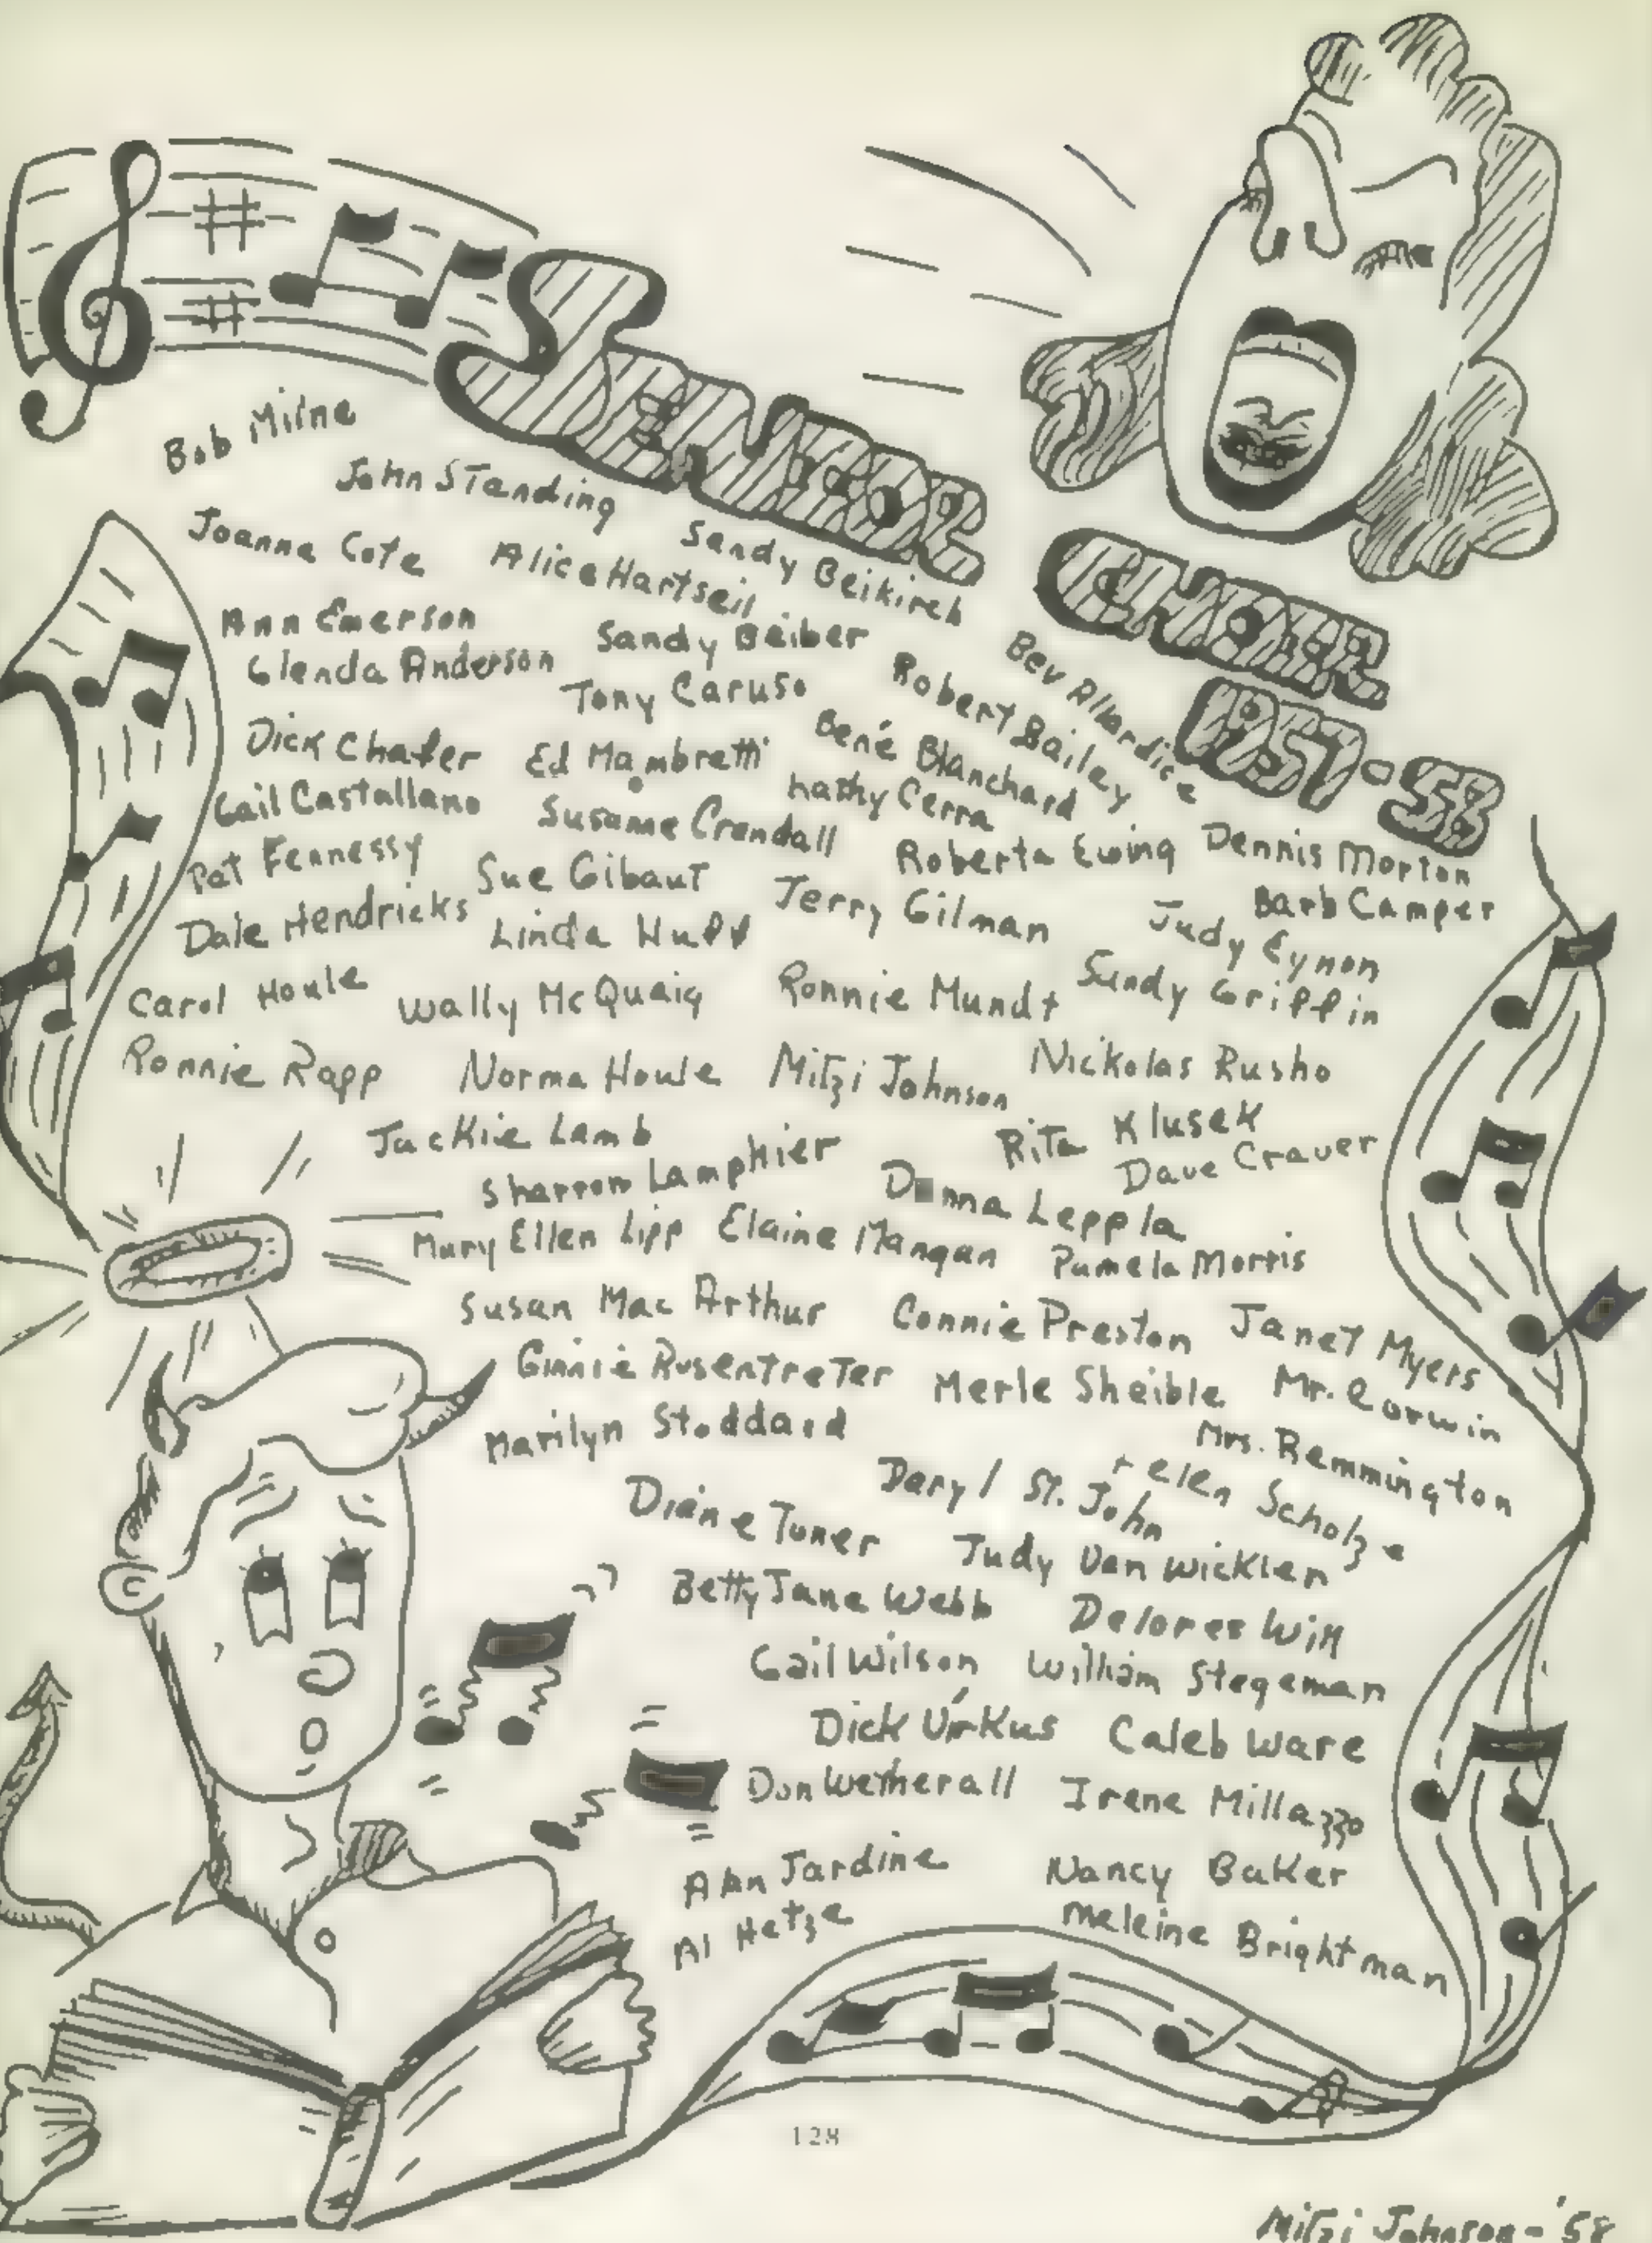 SENIOR
CHOIR
1957-58
Bob Milne
John Standing
Joanne Cote
Alice Hartseil
Sandy Beikirch
Ann Emerson
Sandy Beiber
Bev Allardice
Glenda Anderson
Tony Caruso
Robert Bailey
Dick Chafer
Ed Mambretti
Bené Blanchard
Gail Castallano
Susanne Crandall
Kathy Cerra
Pat Fennessy
Sue Gibaut
Roberta Ewing
Dennis Morton
Dale Hendricks
Linda Huff
Jerry Gilman
Barb Camper
Judy Eynon
Carol Houle
Wally McQuaig
Ronnie Mundt
Sandy Griffin
Ronnie Rapp
Norma Houle
Mitzi Johnson
Nickolas Rusho
Jackie Lamb
Rita Klusek
Sharron Lamphier
Dave Craver
Donna Leppla
Mary Ellen Lipp
Elaine Mangan
Pamela Morris
Susan MacArthur
Connie Preston
Janet Myers
Ginnie Rosentreter
Merle Sheible
Mr. Corwin
Marilyn Stoddard
Mrs. Remmington
Daryl St. John
Helen Scholze
Diane Tuner
Judy Van Wicklen
Betty Jane Webb
Delores Will
Gail Wilson
William Stegeman
Dick Virkus
Caleb Ware
Don Wetherall
Irene Millazzo
Ann Jardine
Nancy Baker
Al Hetze
Meleine Brightman
128
Mitzi Johnson - '58